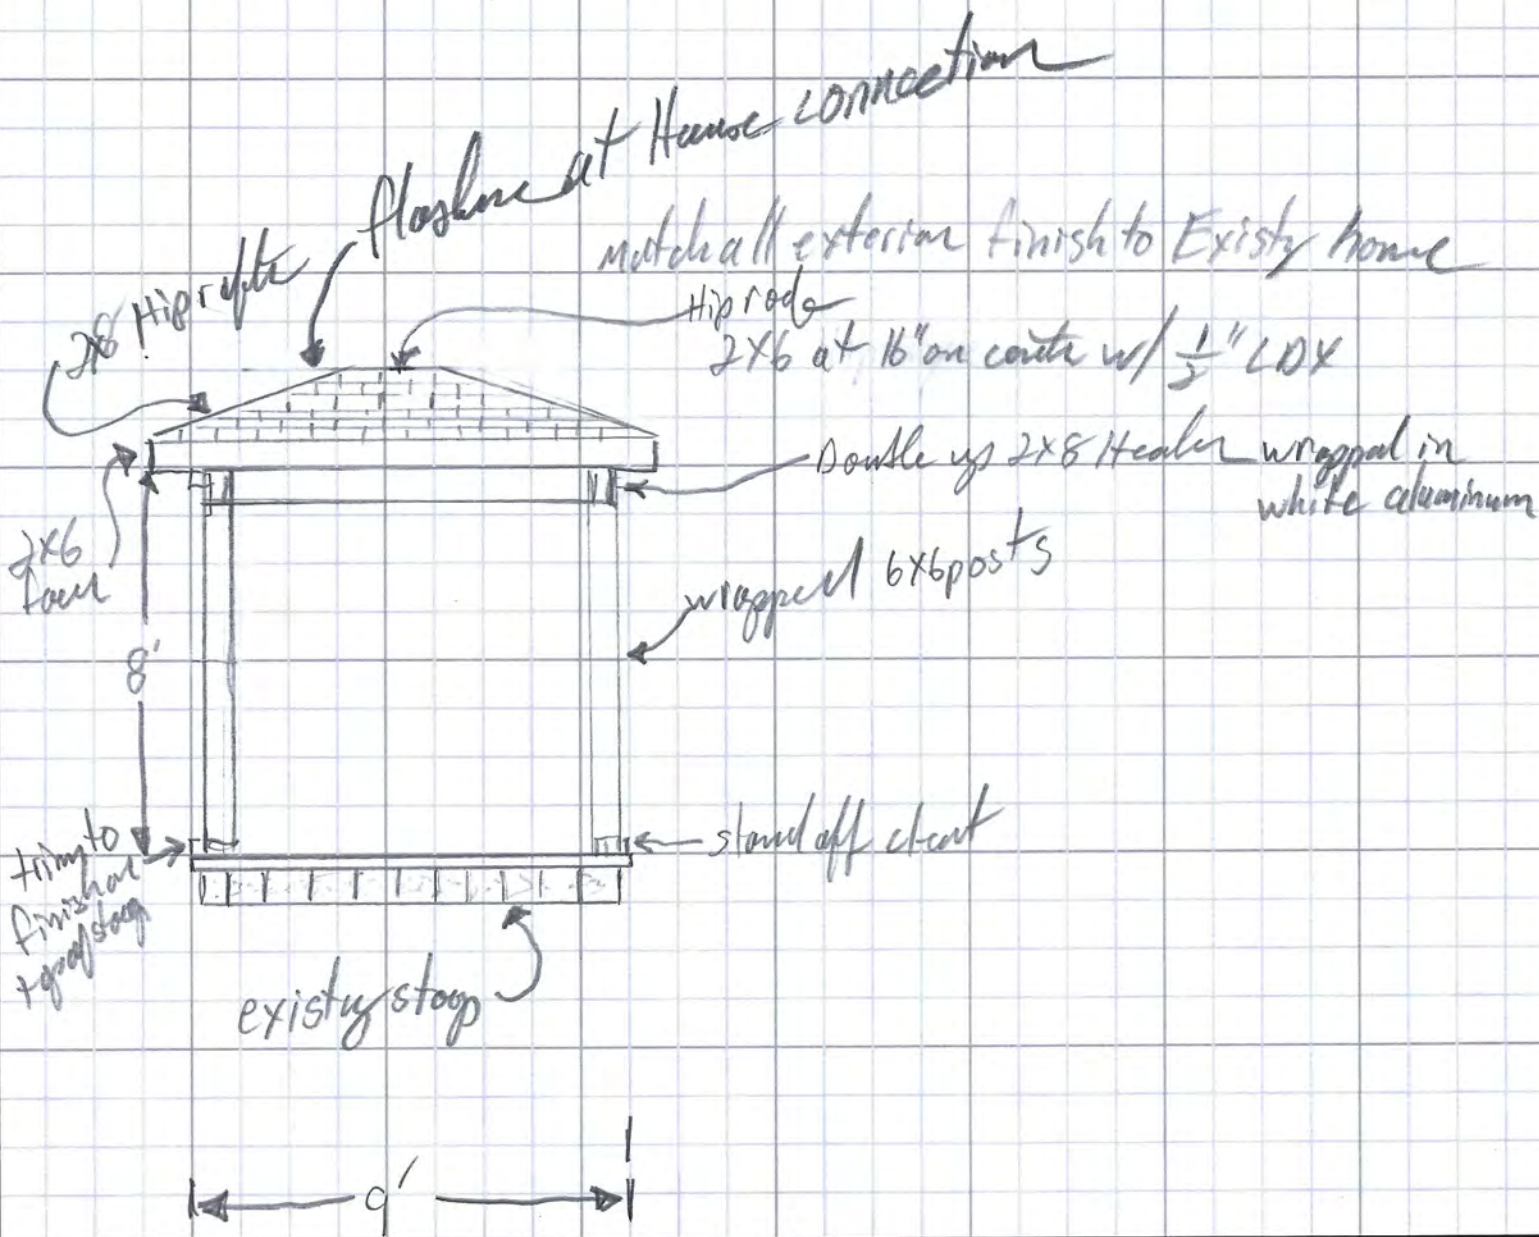 flashing at House connection
match all exterior finish to Existg home
2x8 Hip rafter
Hip roof
2x6 at 16" on cente w/ 1/2" CDX
Double up 2x8 Header wrapped in
white aluminum
2x6
8'
wrapped 6x6 posts
stand off cleat
trim to
finish at
top of stoop
existg stoop
9'